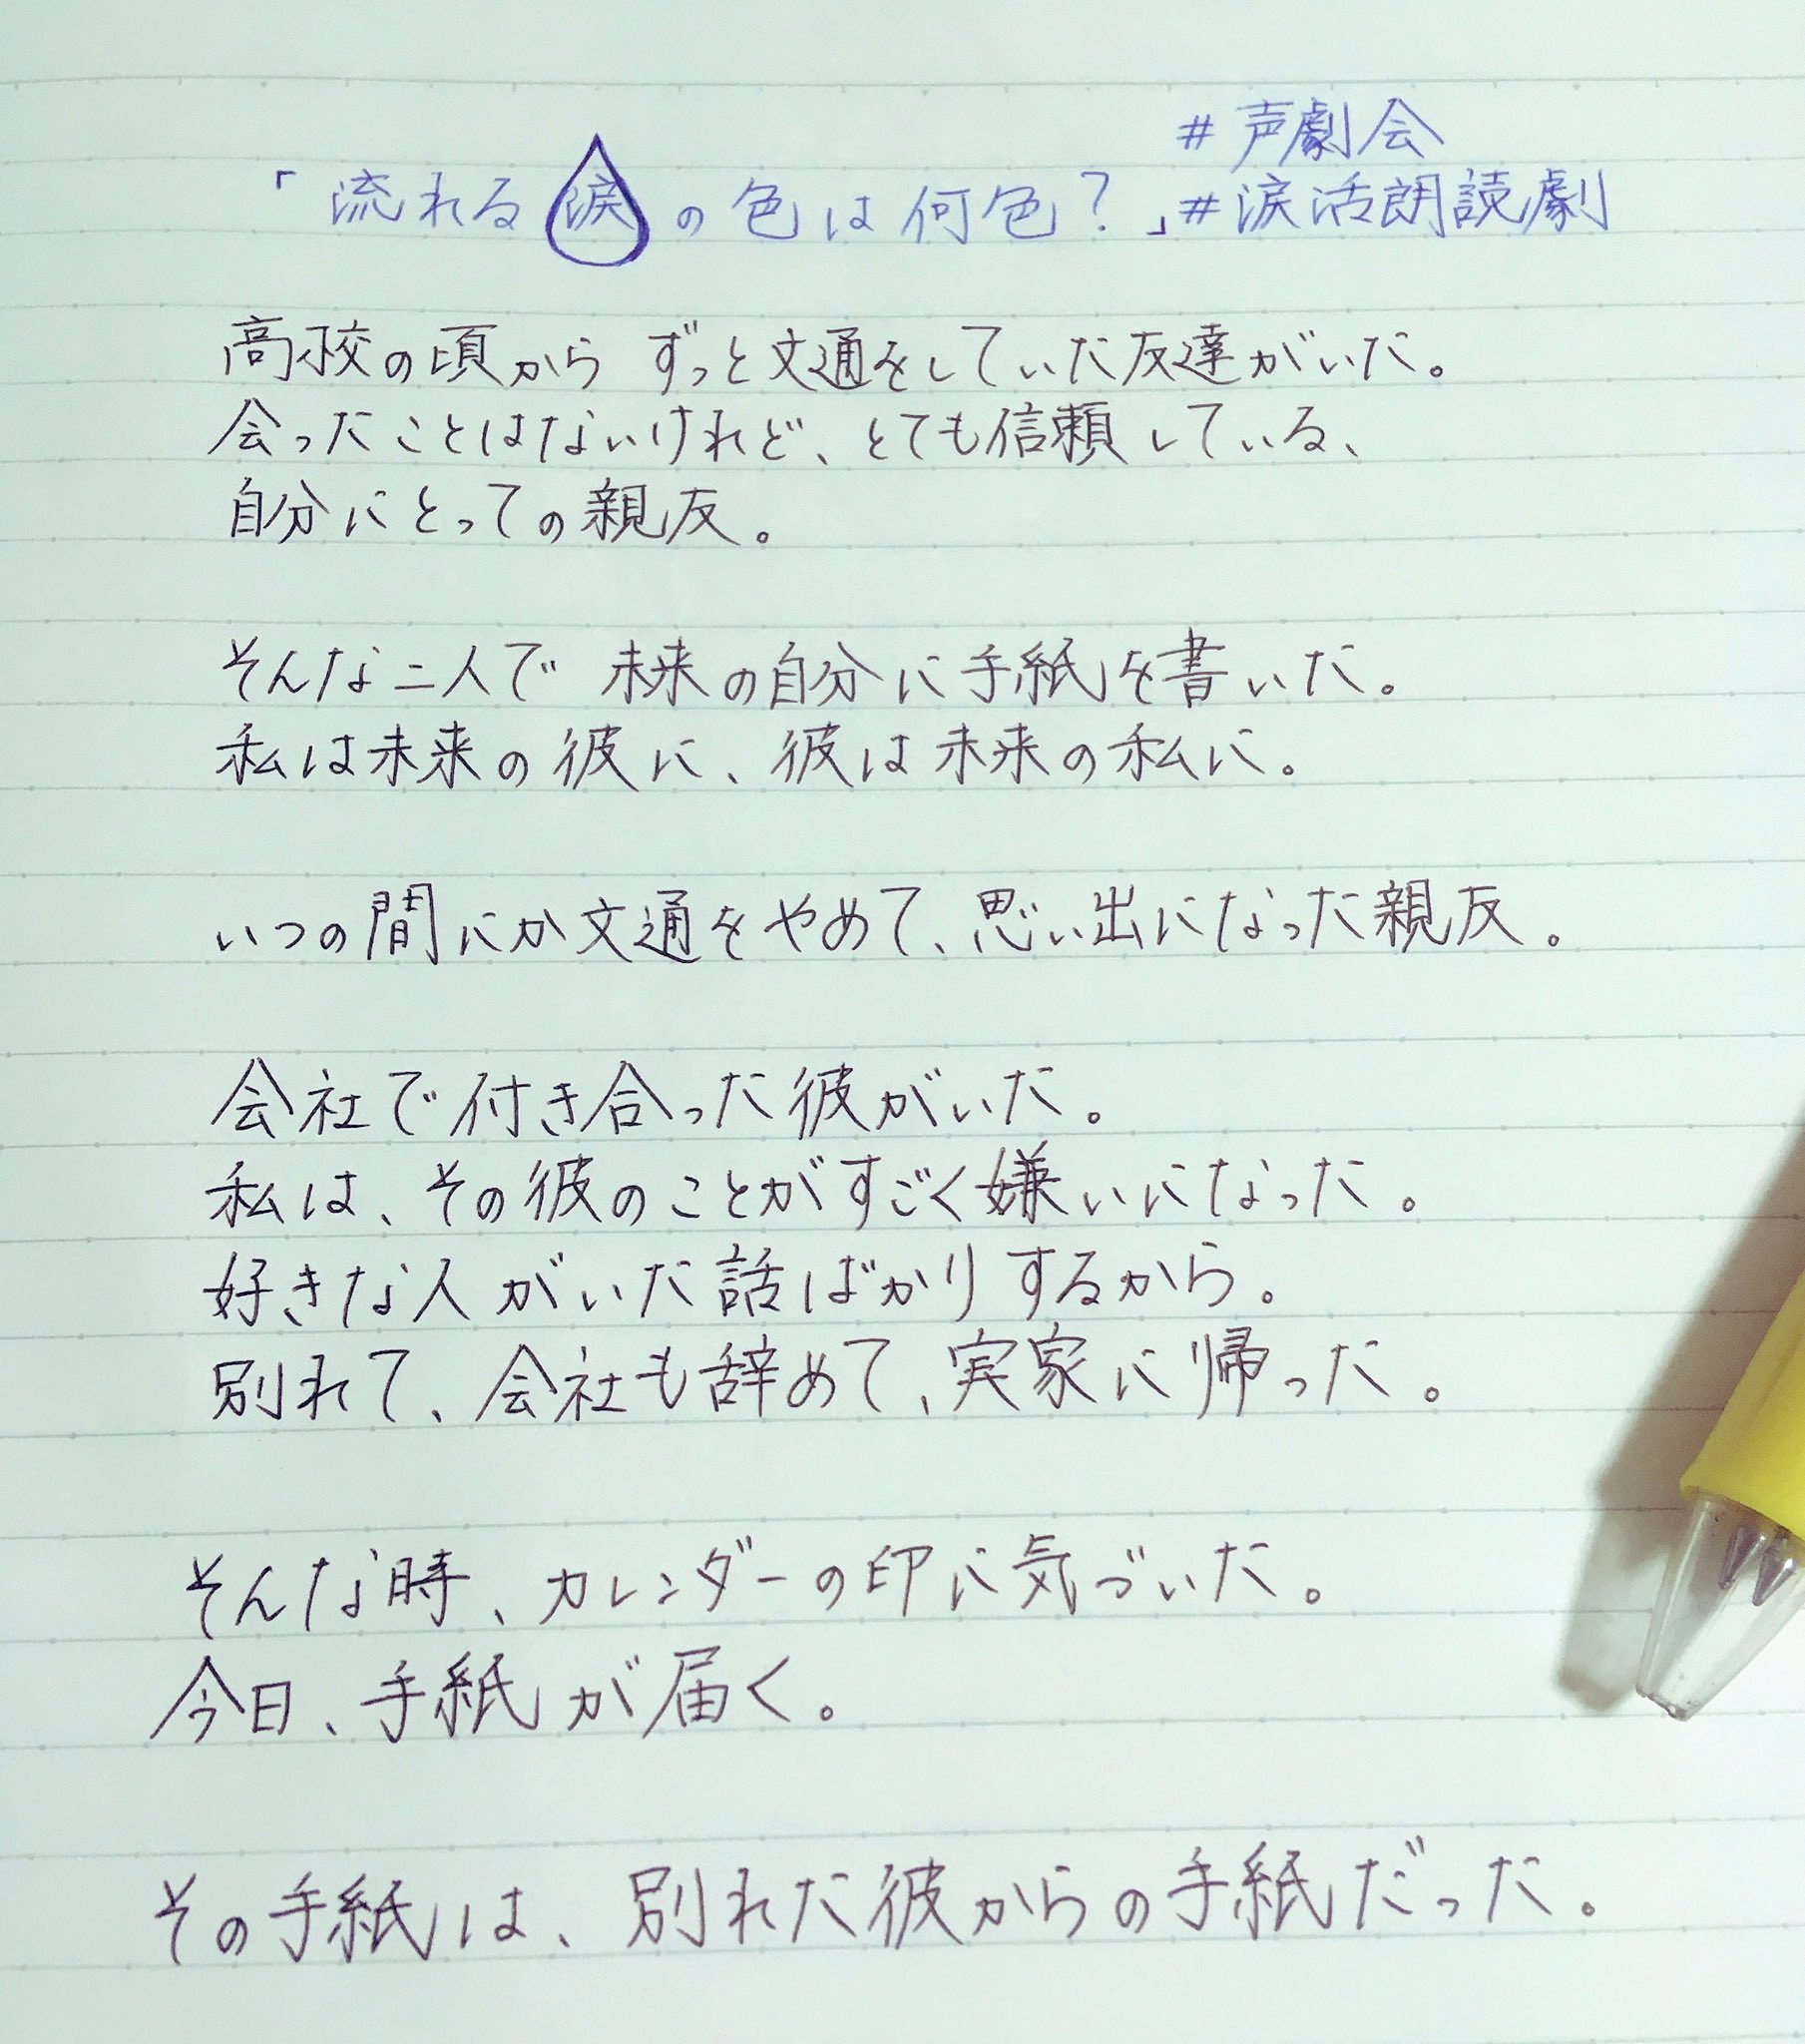 #声劇会
「流れる涙の色は何色?」#涙活朗読劇
高校の頃から ずっと文通をしていた友達がいた。
会ったことはないけれど、とても信頼している、
自分にとっての親友。
そんな二人で 未来の自分に手紙を書いた。
私は未来の彼に、彼は未来の私に。
いつの間にか文通をやめて、思い出になった親友。
会社で付き合った彼がいた。
私は、その彼のことがすごく嫌いになった。
好きな人がいた話ばかりするから。
別れて、会社も辞めて、実家に帰った。
そんな時、カレンダーの印に気づいた。
今日、手紙が届く。
その手紙は、別れた彼からの手紙だった。